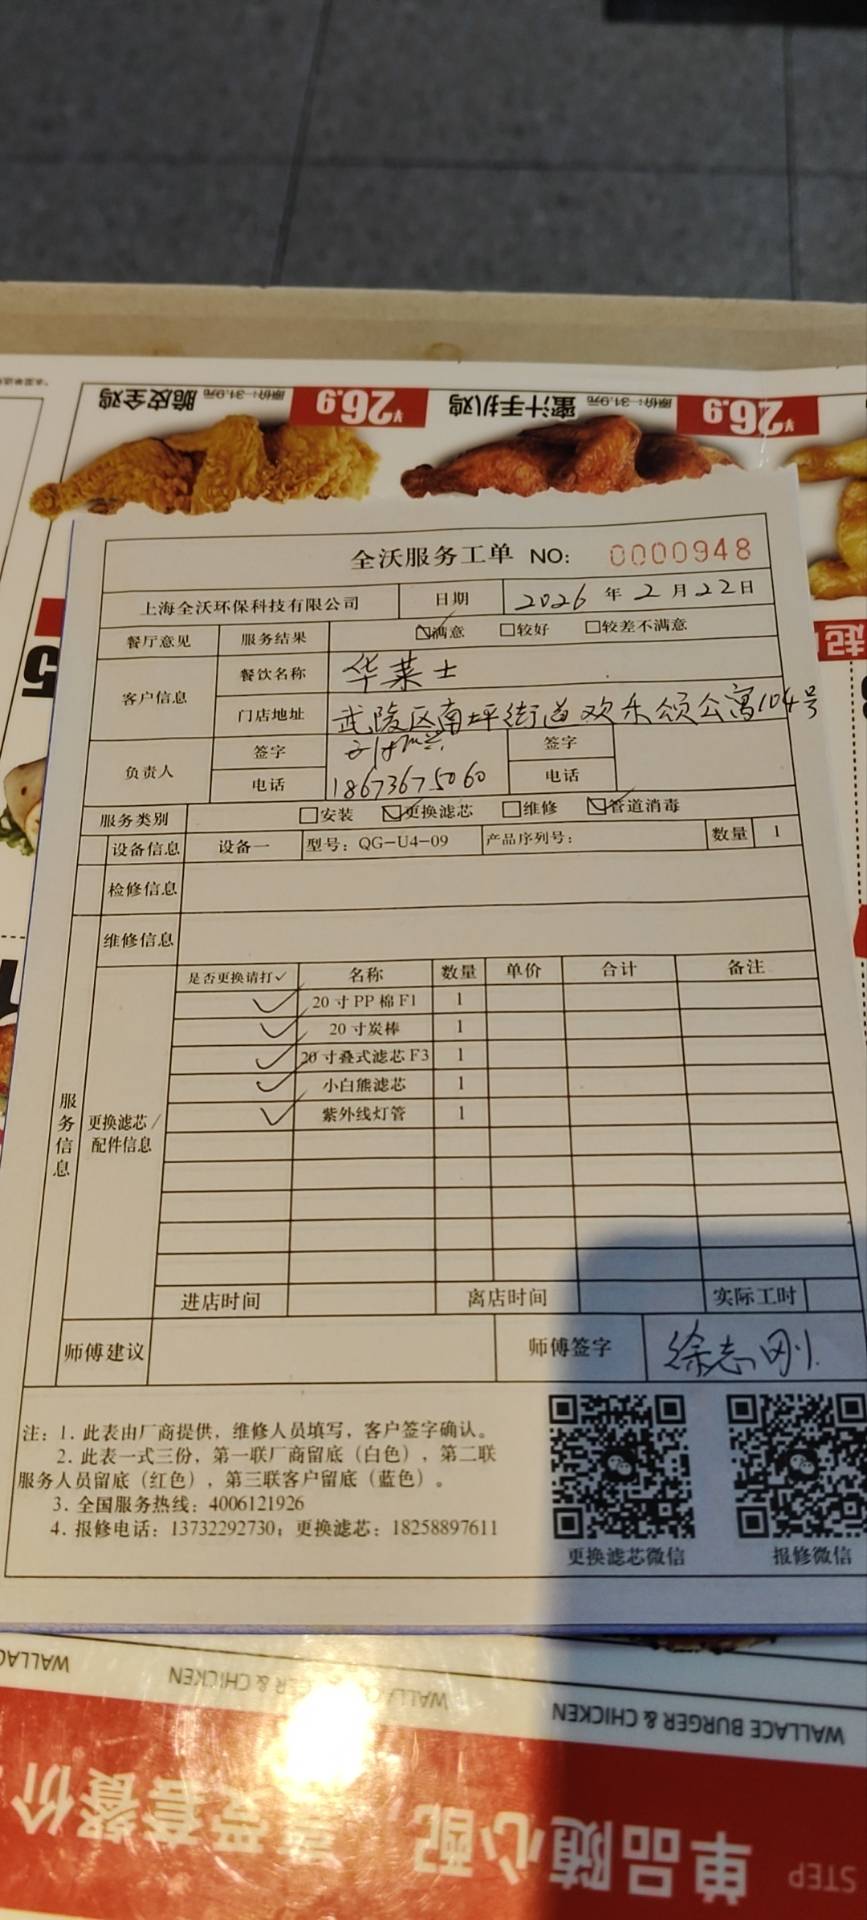 脆皮全鸡 原价:31.9元 ¥26.9
蜜汁手扒鸡 原价:31.9元 ¥26.9
全沃服务工单 NO: 0000948
上海全沃环保科技有限公司 日期 2026年2月22日
餐厅意见 服务结果 ☑满意 □较好 □较差不满意
客户信息 餐饮名称 华莱士
门店地址 武陵区南坪街道欢乐颂公寓104号
负责人 签字 签字
电话 18673675060 电话
服务类别 □安装 ☑更换滤芯 □维修 ☑管道消毒
设备信息 设备一 型号：QG-U4-09 产品序列号： 数量 1
检修信息
维修信息
服务信息
更换滤芯/配件信息
是否更换请打✓ 名称 数量 单价 合计 备注
✓ 20寸PP棉F1 1
✓ 20寸炭棒 1
✓ 20寸叠式滤芯F3 1
✓ 小白熊滤芯 1
✓ 紫外线灯管 1
进店时间 离店时间 实际工时
师傅建议 师傅签字 徐志刚
注：1. 此表由厂商提供，维修人员填写，客户签字确认。
2. 此表一式三份，第一联厂商留底（白色），第二联
服务人员留底（红色），第三联客户留底（蓝色）。
3. 全国服务热线：4006121926
4. 报修电话：13732292730；更换滤芯：18258897611
更换滤芯微信 报修微信
WALLACE BURGER & CHICKEN
单品随心配
套餐价
STEP